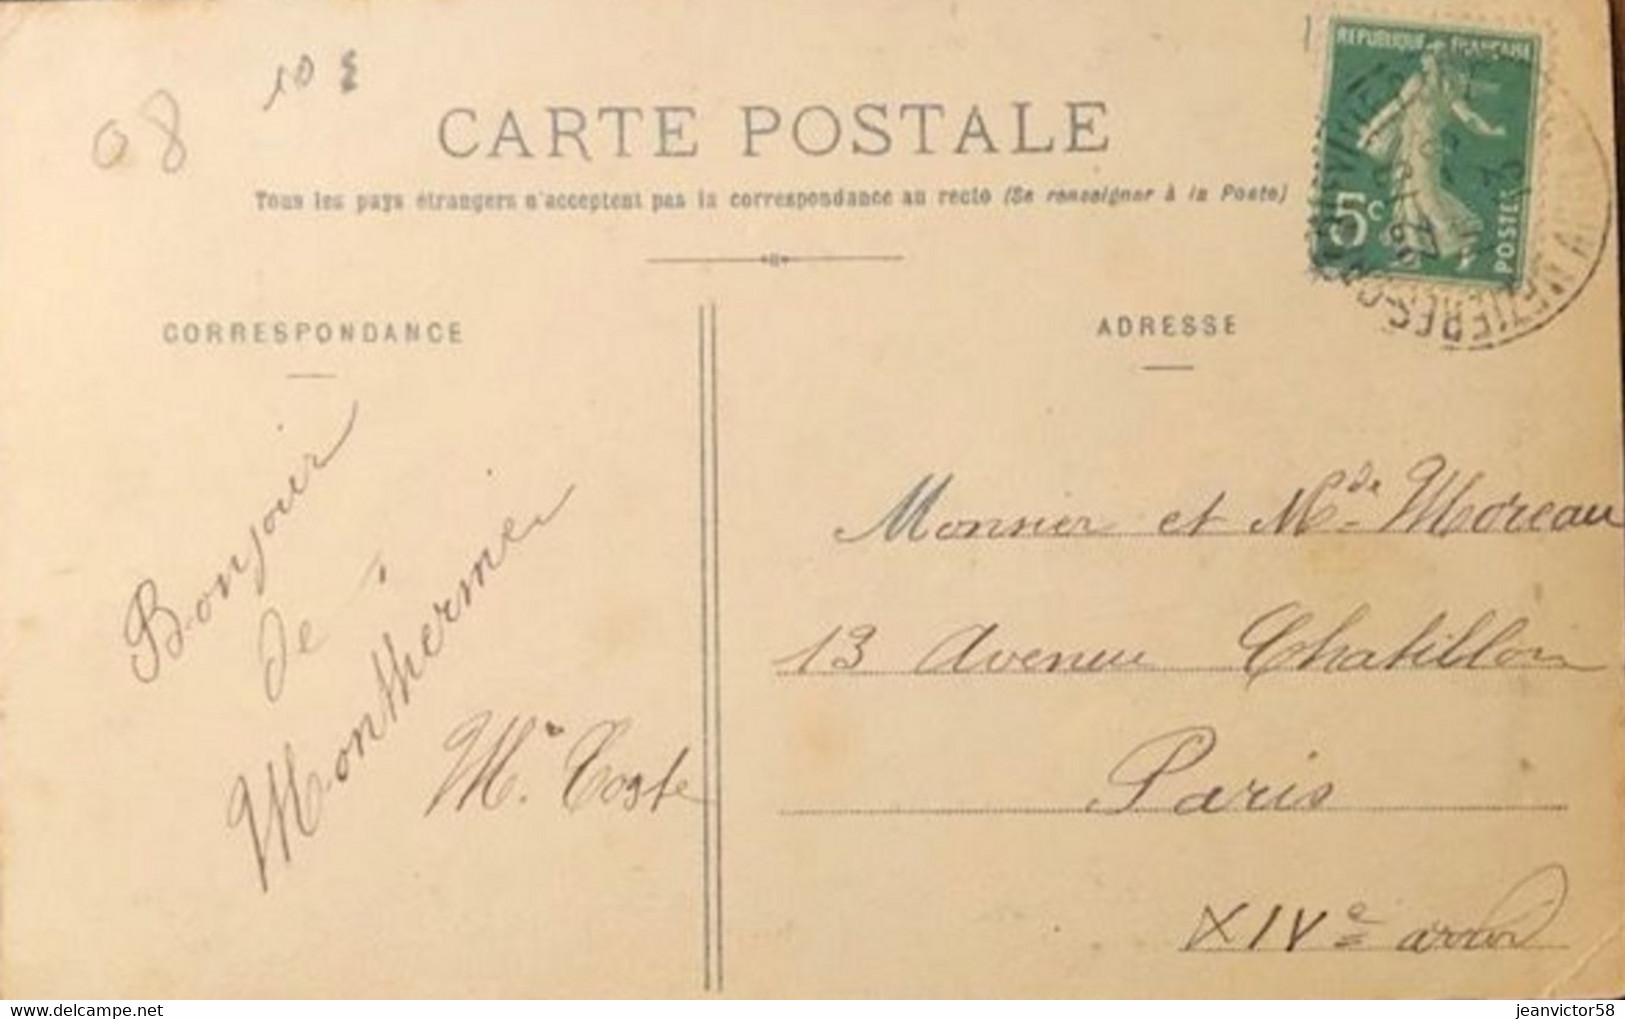 08
10 €
CARTE POSTALE
Tous les pays étrangers n'acceptent pas la correspondance au recto (Se renseigner à la Poste)
REPUBLIQUE FRANÇAISE
5c
POSTES
CORRESPONDANCE
ADRESSE
Bonjour
de
Monthermer
Mr Coste
Monsier et Mde Moreau
13 Avenue Chatillon
Paris
XIVe arron
jeanvictor58